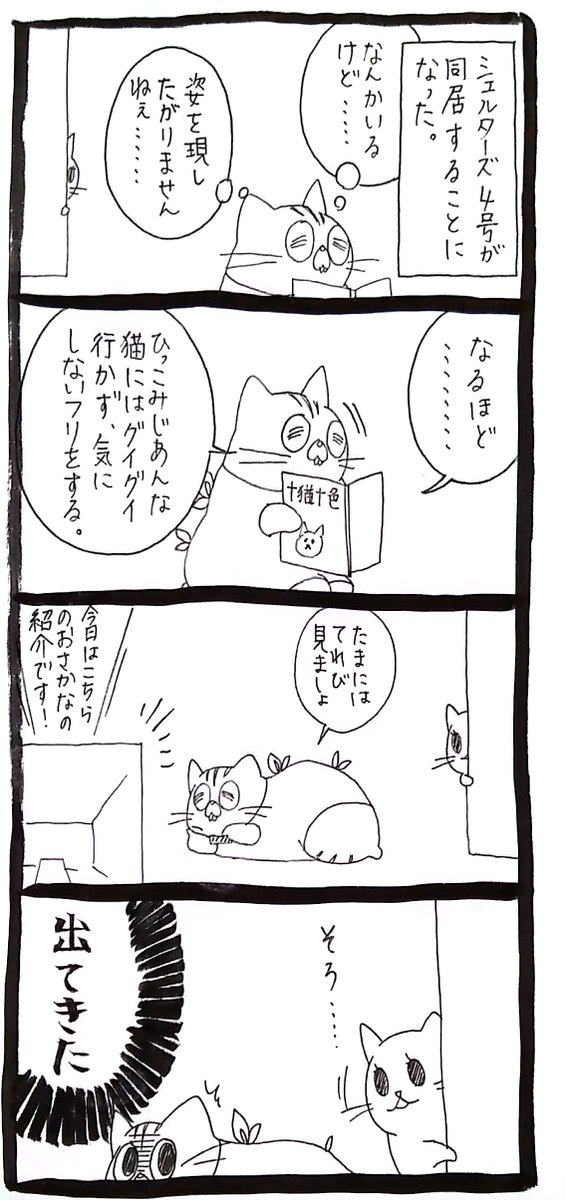 シェルターズ4号が
同居することに
なった。
なんかいる
けど……
姿を現し
たがりません
ねぇ……
なるほど
………
十猫十色
ひっこみじあんな
猫にはグイグイ
行かず、気に
しないフリをする。
たまには
てれび
見ましょ
今日はこちら
のおさかなの
紹介です！
そろ……
出てきた